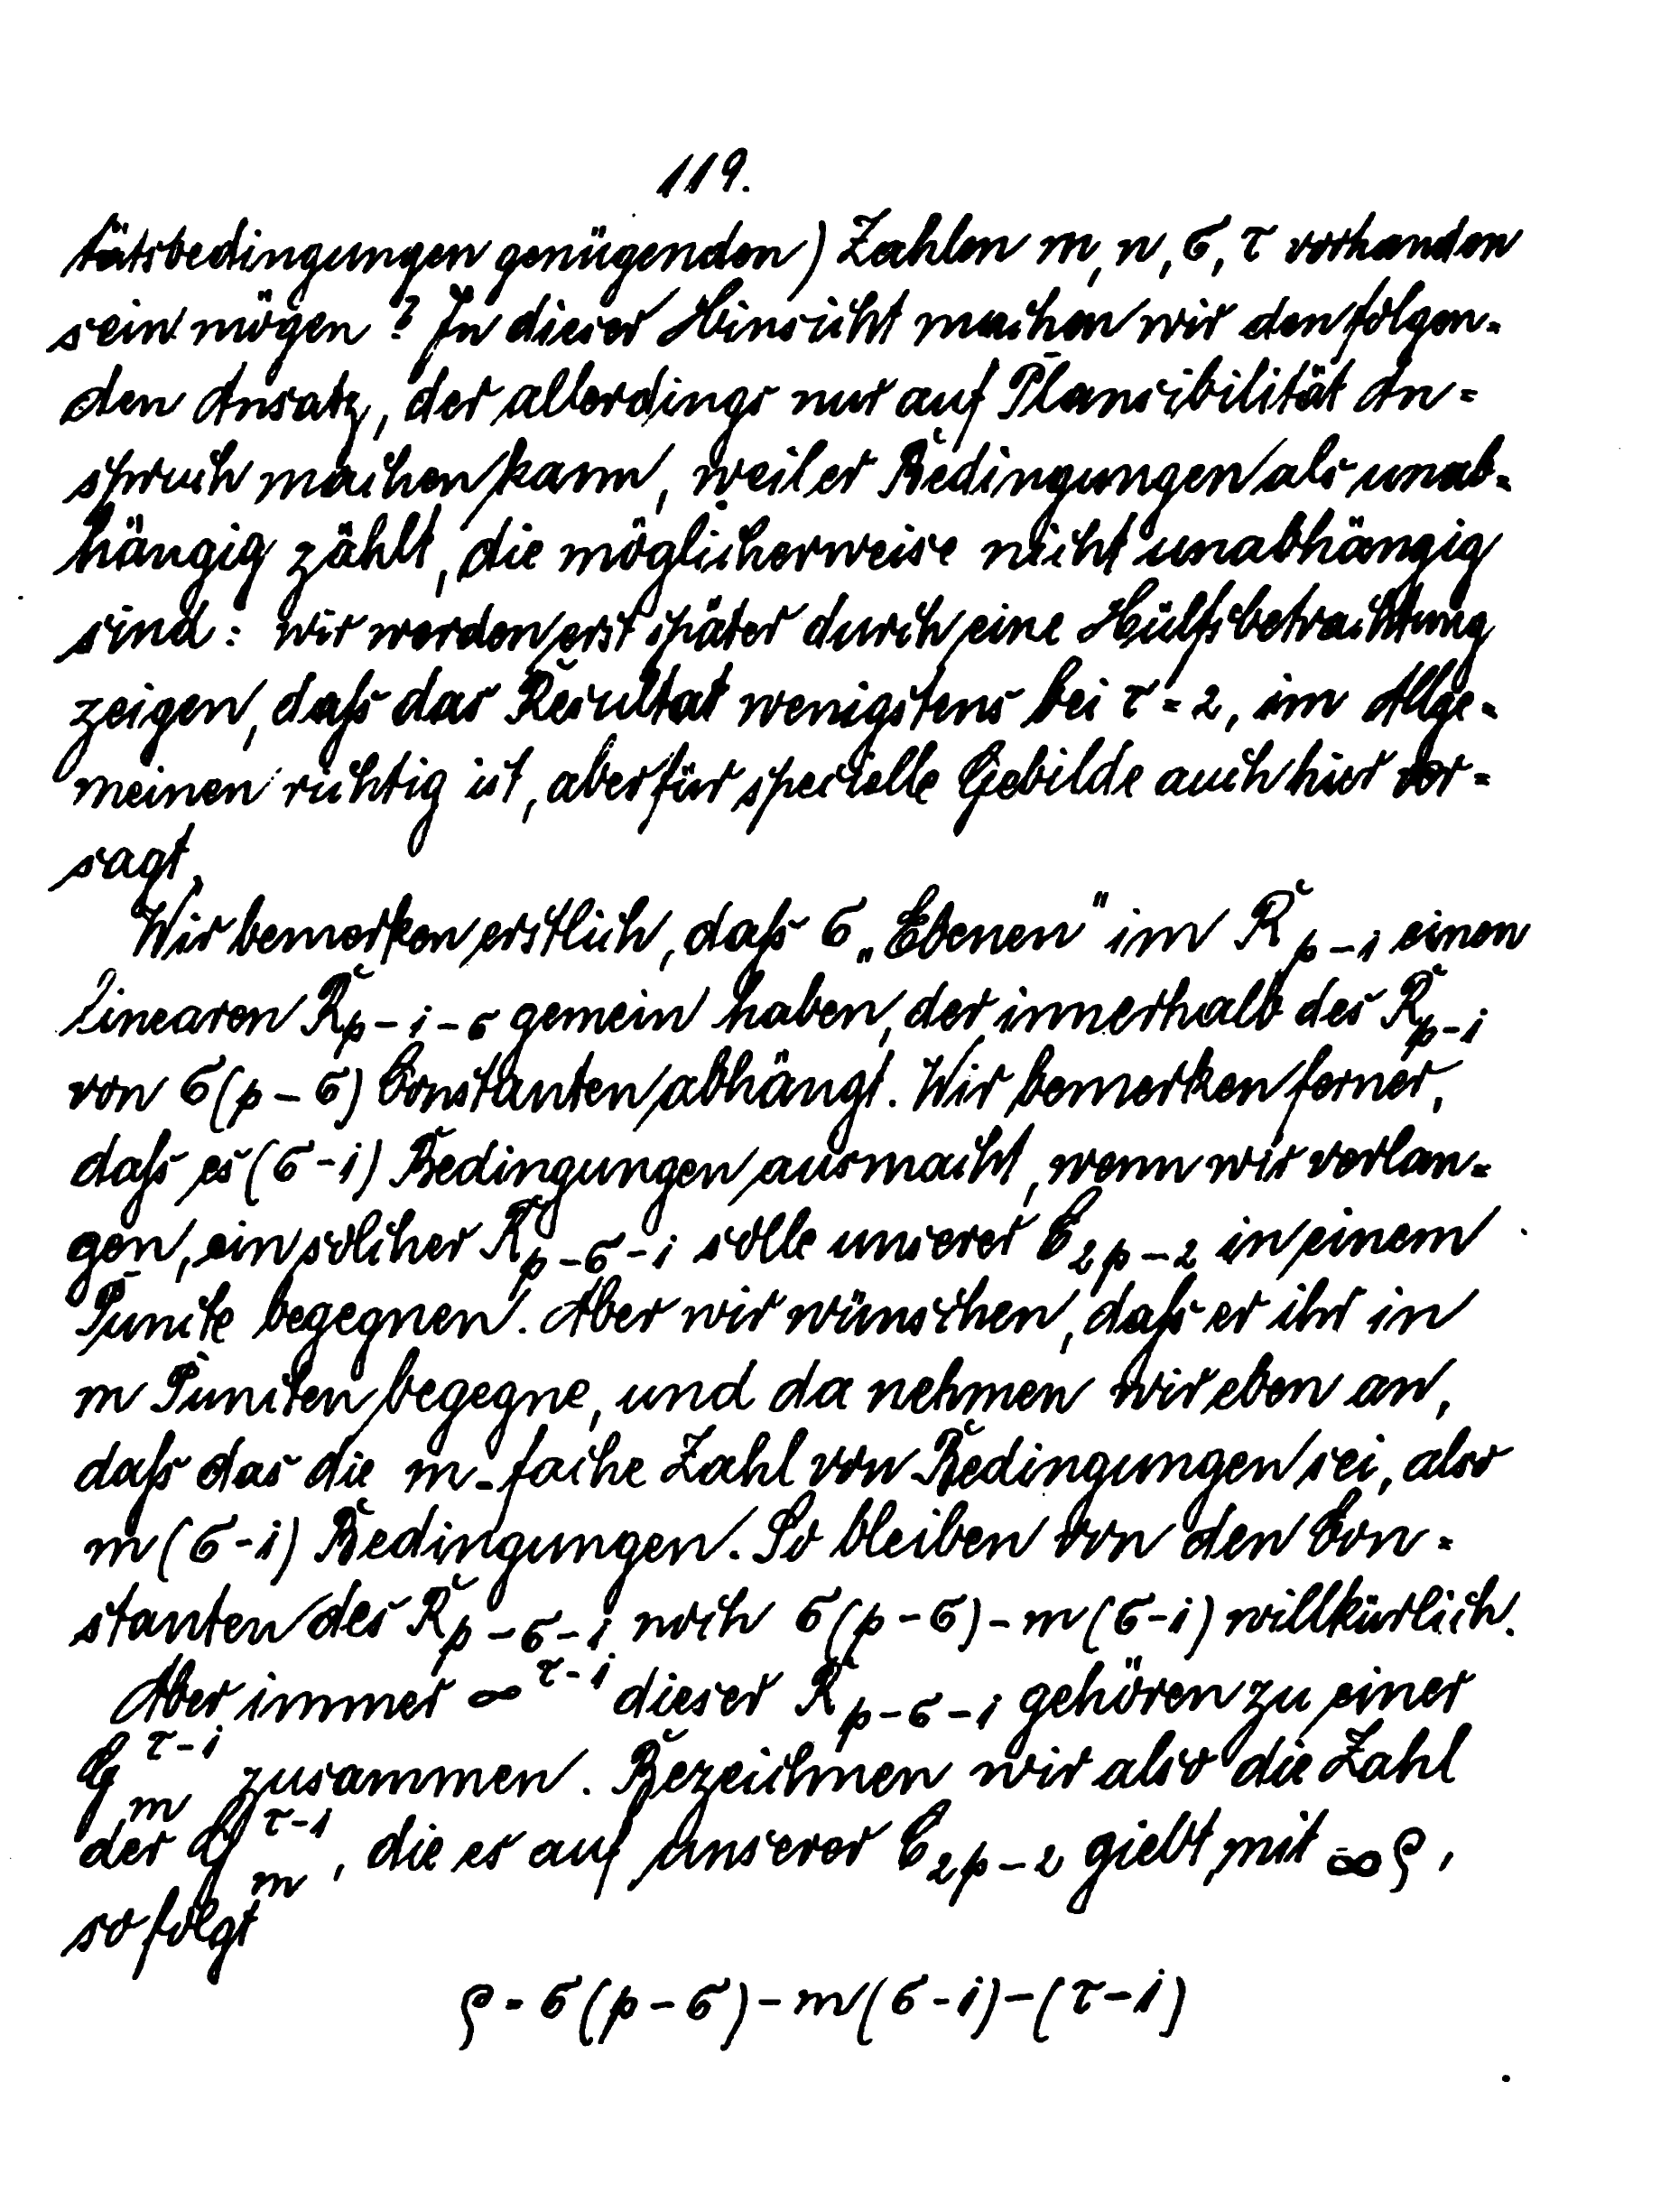 119.
tätsbedingungen genügenden) Zahlen m, n, σ, τ vorhanden
sein mögen? In dieser Hinsicht machen wir den folgen-
den Ansatz, der allerdings nur auf Plausibilität An-
spruch machen kann, weil er Bedingungen als unab-
hängig zählt, die möglicherweise nicht unabhängig
sind: wir werden erst später durch eine Hülfsbetrachtung
zeigen, daſs das Resultat wenigstens bei τ = 2, im Allge-
meinen richtig ist, aber für specielle Gebilde auch hier ver-
sagt.
Wir bemerken erstlich, daſs σ „Ebenen" im R_{p-1} einen
linearen R_{p-1-σ} gemein haben, der innerhalb des R_{p-1}
von σ(p-σ) Constanten abhängt. Wir bemerken ferner,
daſs es (σ-1) Bedingungen ausmacht, wenn wir verlan-
gen, ein solcher R_{p-σ-1} solle unserer C_{2p-2} in einem
Puncte begegnen. Aber wir wünschen, daſs er ihr in
m Puncten begegne, und da nehmen wir eben an,
daſs das die m-fache Zahl von Bedingungen sei, also
m(σ-1) Bedingungen. So bleiben von den Con-
stanten des R_{p-σ-1} noch σ(p-σ)-m(σ-1) willkürlich.
Aber immer ∞^{τ-1} dieser R_{p-σ-1} gehören zu einer
G_m^{τ-1} zusammen. Bezeichnen wir also die Zahl
der G_m^{τ-1}, die es auf unserer C_{2p-2} giebt, mit ∞^ρ,
so folgt
ρ = σ(p-σ)-m(σ-1)-(τ-1)